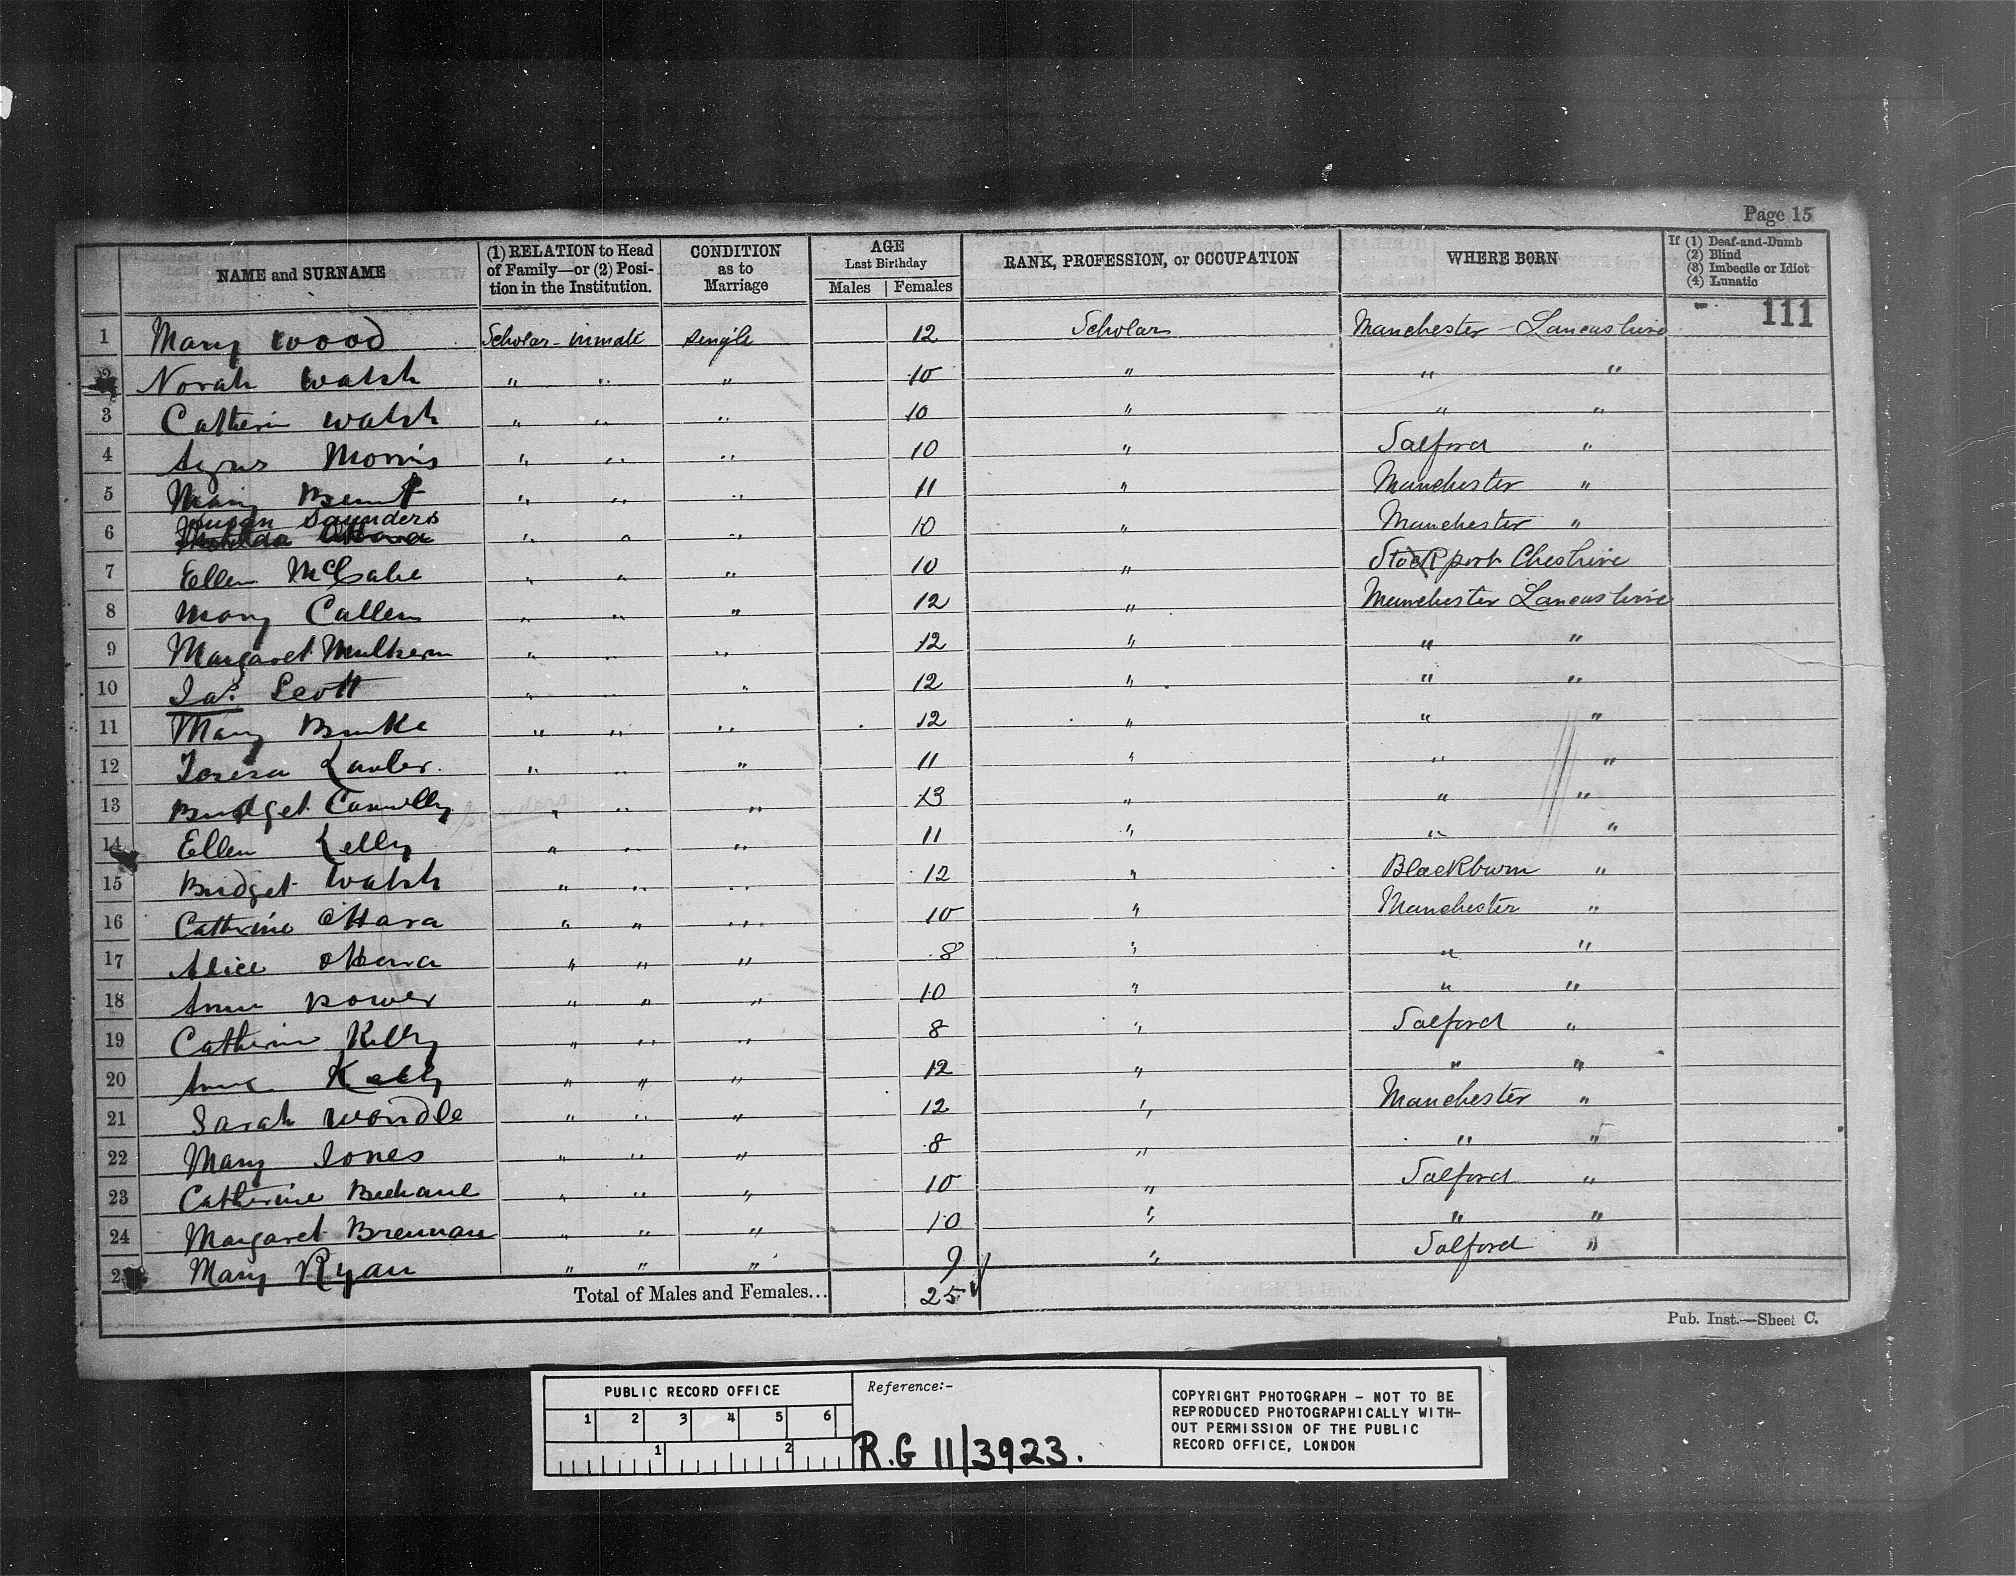 Page 15
NAME and SURNAME (1) RELATION to Head of Family—or (2) Position in the Institution. CONDITION as to Marriage AGE Last Birthday Males Females RANK, PROFESSION, or OCCUPATION WHERE BORN If (1) Deaf-and-Dumb (2) Blind (3) Imbecile or Idiot (4) Lunatic
111
1 Mary Wood Scholar - inmate Single 12 Scholar Manchester - Lancashire
2 Norah Walsh " " " 10 " " "
3 Catherin Walsh " " " 10 " " "
4 Agnes Morris " " " 10 " Salford "
5 Mary " " " 11 " Manchester "
Susan Saunders
6 " " " 10 " Manchester "
7 Ellen McCabe " " " 10 " Stockport Cheshire
8 Mary Cullen " " " 12 " Manchester Lancashire
9 Margaret Mulkern " " " 12 " " "
10 Scott " " " 12 " " "
11 Mary Burke " " " 12 " " "
12 Teresa Lawler " " " 11 " " "
13 Bridget Connolly " " " 13 " " "
14 Ellen Kelly " " " 11 " " "
15 Bridget Walsh " " " 12 " Blackburn "
16 Catherine OHara " " " 10 " Manchester "
17 Alice OHara " " " 8 " " "
18 Anne Power " " " 10 " " "
19 Catherine Kelly " " " 8 " Salford "
20 Anne Kelly " " " 12 " " "
21 Sarah Wondle " " " 12 " Manchester "
22 Mary Jones " " " 8 " " "
23 Catherine " " " 10 " Salford "
24 Margaret Brennan " " " 10 " " "
25 Mary Ryan " " " 9 " Salford "
Total of Males and Females... 25
Pub. Inst.—Sheet C.
PUBLIC RECORD OFFICE
1 2 3 4 5 6
1 2
Reference:-
R.G 11/3923.
COPYRIGHT PHOTOGRAPH - NOT TO BE
REPRODUCED PHOTOGRAPHICALLY WITH-
OUT PERMISSION OF THE PUBLIC
RECORD OFFICE, LONDON